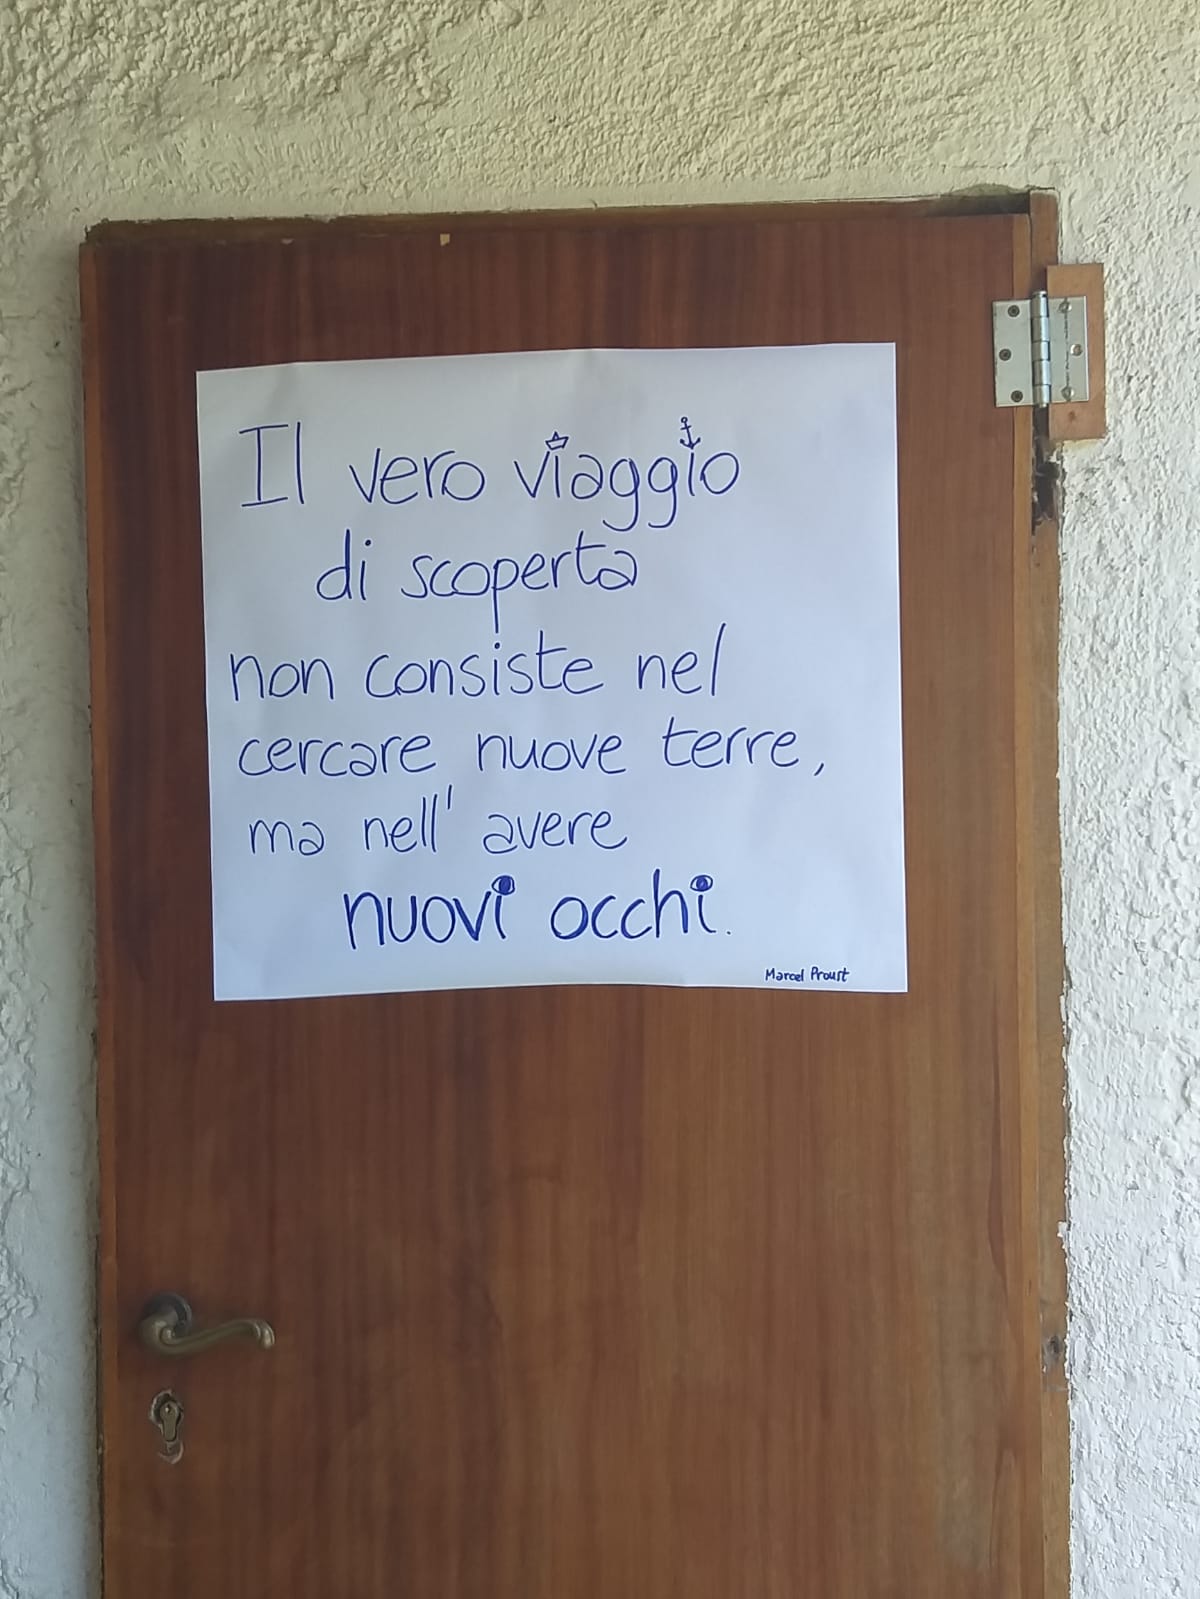 Il vero viaggio
di scoperta
non consiste nel
cercare nuove terre,
ma nell' avere
nuovi occhi.
Marcel Proust